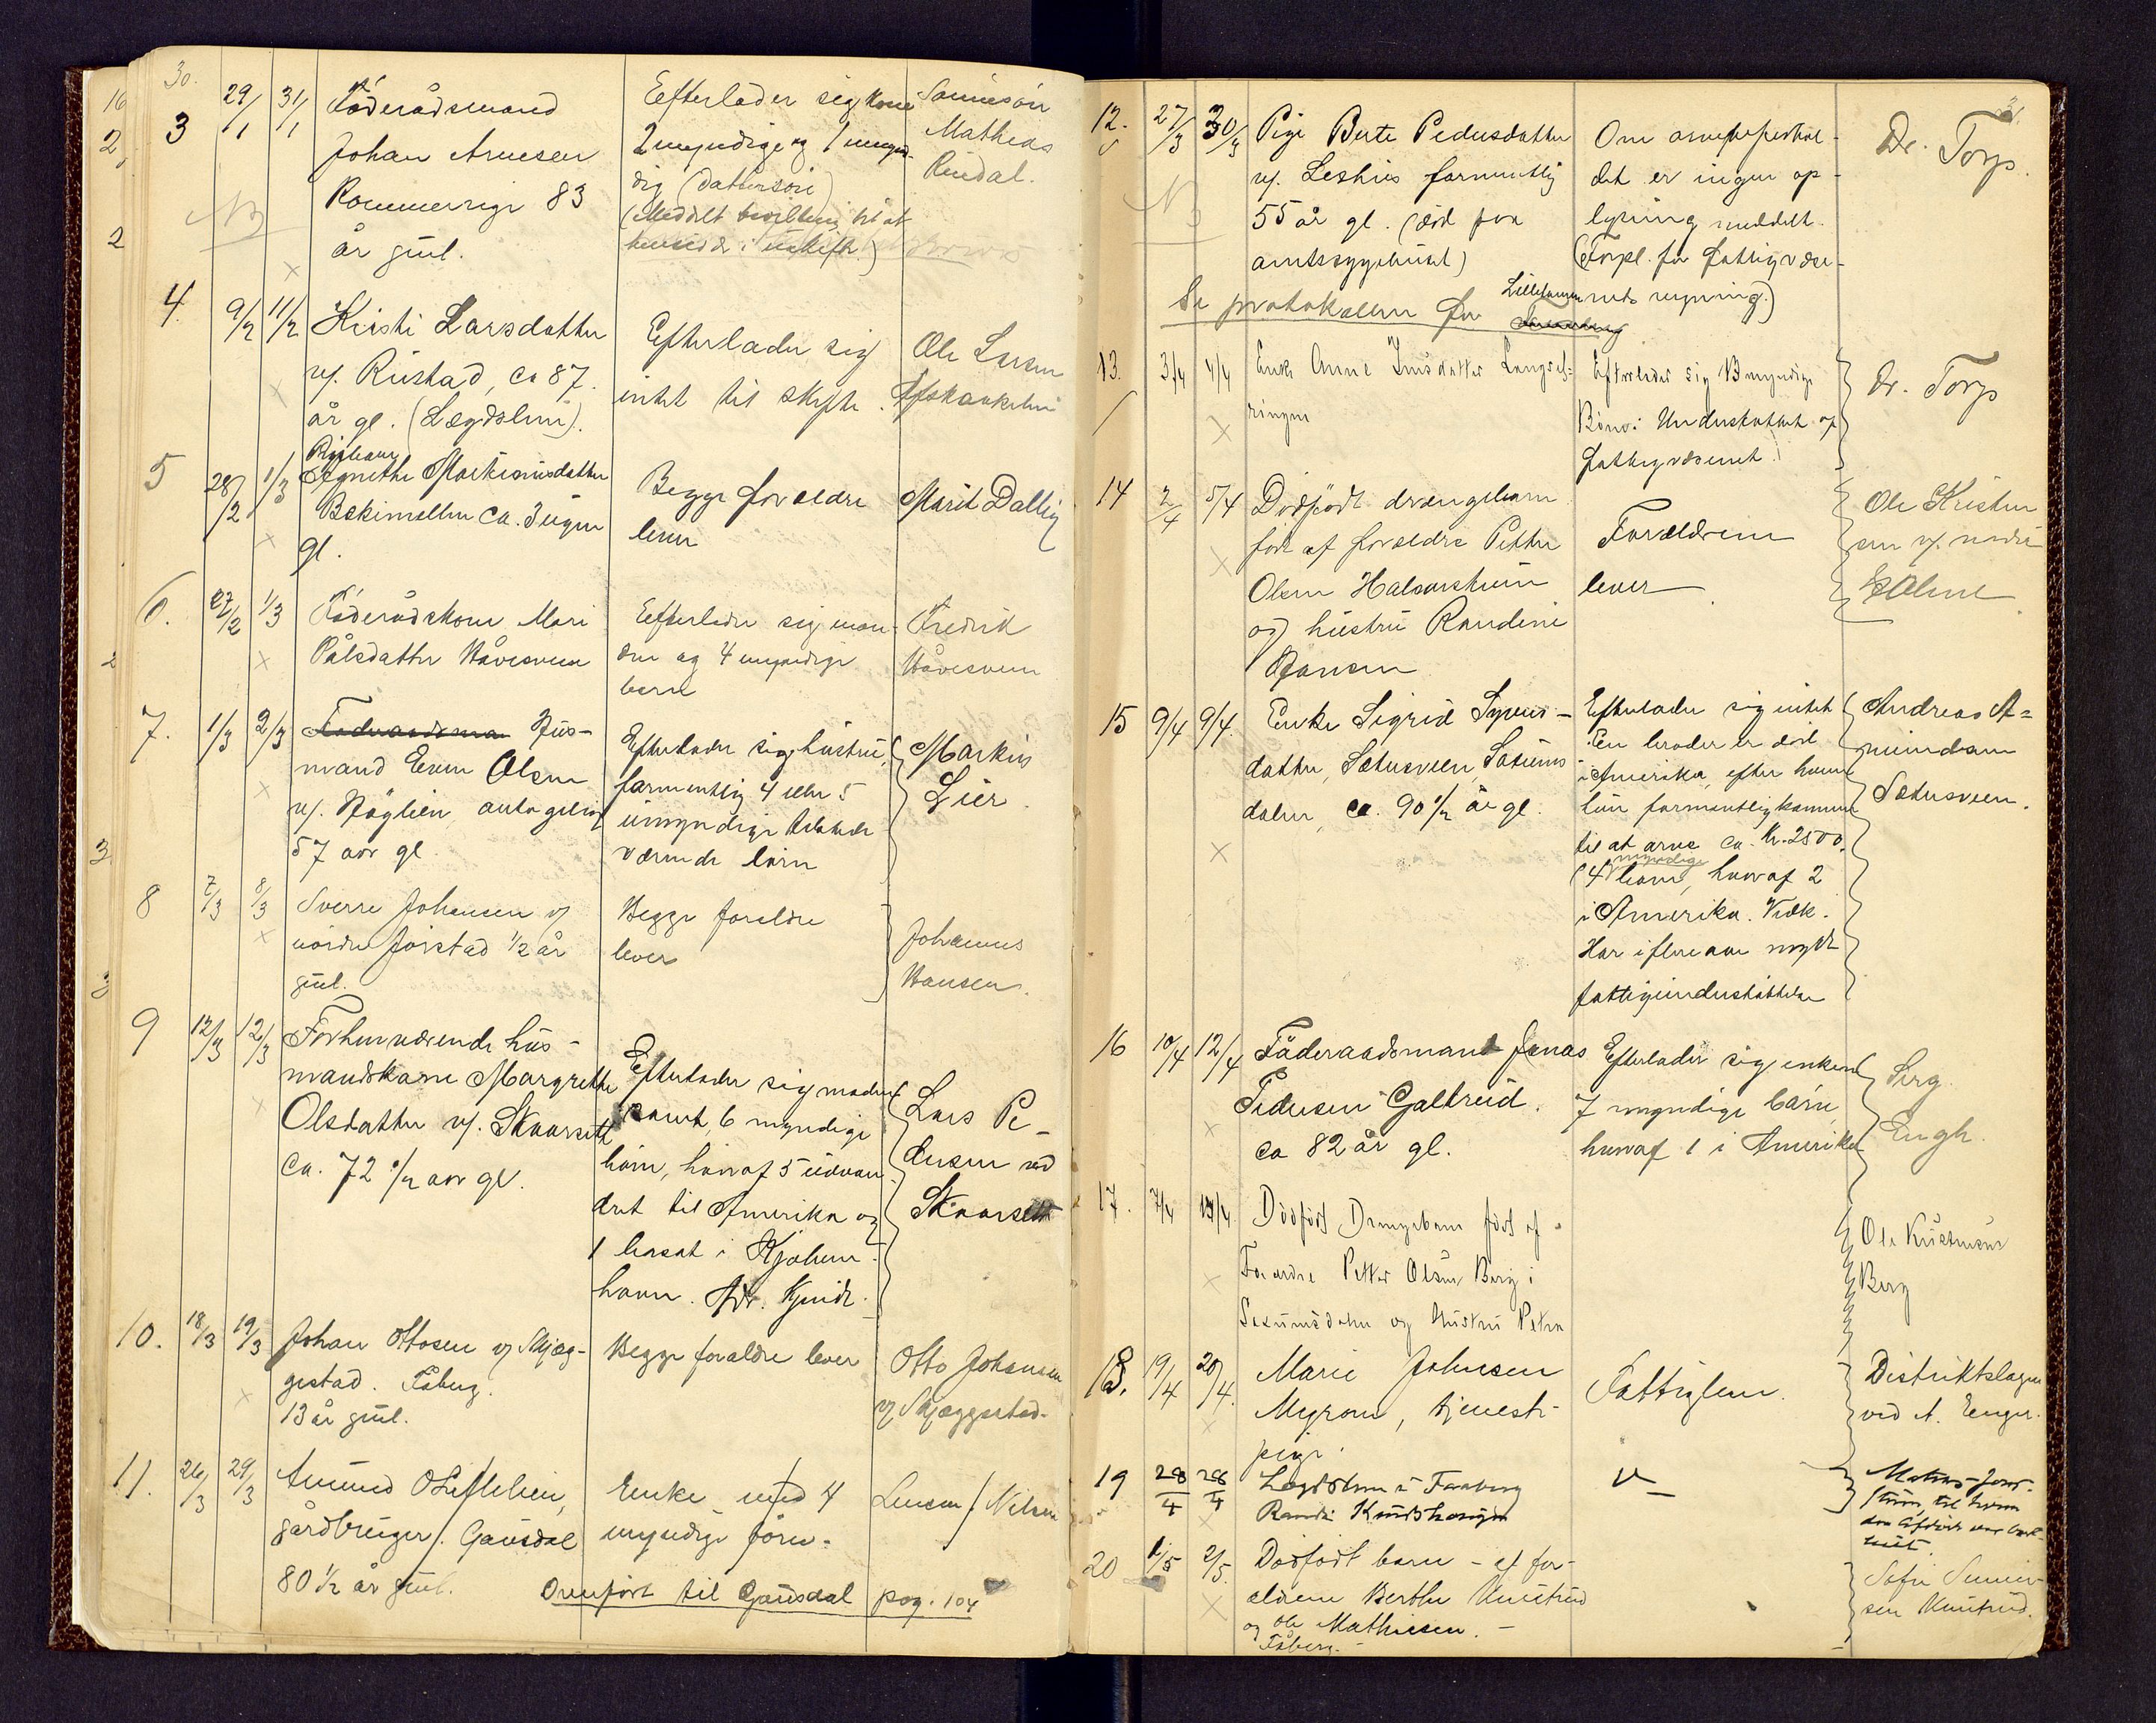 30.
3 29/1 31/1 Föderådsmand
Johan Arnesen
Rommerrige 83
år gml.
NB
Eefterlader sig kone
2 myndige og 1 umyn-
dig (dattersön)
(Meddelt bevilling til at
hensidde i uskifte)
Mathias
Rindal.
4. 9/2 11/2 Kristi Larsdatter
v/. Rustad, ca 87.
år gl. (Lægdslem).
Efterlader sig
intet til skifte.
Ole Larsen
5 28/2 1/3 Pigebarn
Agnethe Martinusdatter
ca. 3 ugen
gl.
Begge forældre
lever
Marit Dalbig
6. 27/2 1/3 Föderådskone Mari
Pålsdatter Håvesveen
Eefterlader sig man-
den og 4 myndige
børn
Fredrik
Håvesveen
7. 1/3 2/3 Föderaadsman Hus-
mand Even Olsen
v/. Höglien, antagelig
57 aar gl
Efterlader sig hustru,
formentlig 4 eller 5
umyndige tilstede
værende börn
Markus
Lier.
8 7/3 8/3 Sverre Johansen v/
nordre Jörstad 1/2 år
gml.
Begge forældre
lever
Johannes
Hansen.
9 12/3 12/3 Forhenværende hus-
mandskone Margrethe
Olsdatter v/. Skaarsett
ca. 72 1/2 aar gl.
Efterlader sig manden
samt 6 myndige
börn, hvoraf 5 udvan-
dret til Amerika og
1 bosat i Kjöben-
havn. Adr. Kjendt.
Lars Pe-
dersen ved
Skaarsett
10. 18/3 19/3 Johan Ottosen v/ Skjæg-
gestad. Fåberg.
13 år gml.
Begge forældre lever
Otto Johansen
v/ Skjæggestad.
11. 26/3 29/3 Amund O. Lillehien,
gårdbruger /. Gausdal
80 1/2 år gml.
Enke med 4
myndige börn.
Lensm/ Nilsen
Overfört til Gausdal pag. 104
31.
12. 27/3 30/3 Pige Berte Pedersdatter
v/. Leshus formentlig
55 år gl. (död paa
amtssygehuset)
NB
Om arveforhol-
det er ingen op-
lysning meddelt.
(Forpl. for fattigvæse-
nets regning.)
Se protokollen for Lillehammer
Dr. Torp.
13. 3/4 4/4 Enke Anne Langsæt-
ringen
Efterlader sig 3 myndige
Börn. Understöttet af
fattigvæsenet.
Dr. Torp
14 2/4 5/4 Dödfödt drengebarn
födt af forældre Petter
Olsen Halvorsheim
og hustru Randine
Hansen
Forældrene
lever
Ole Kristen
sen v/. nedre
Holme
15 9/4 9/4. Enke Sigrid Syvers-
datter, Sætersveen, Saxums
dalen, ca. 90 1/2 år gl.
Efterlader sig intet
En broder er död
i Amerika, efter ham
hun formentlig kommer
til at arve ca. Kr. 2500.
(4 myndige börn, hvoraf 2
i Amerika.
Har i flere aar nydt
fattigunderstöttelse
Andreas A=
mundsen
Sætersveen.
16 10/4 12/4 Föderaadsmand Jonas
Pedersen Galterud.
ca 82 år gl.
Efterlader sig enken
7 myndige börn,
hvoraf 1 i Amerika
Serg.
Engh.
17. 7/4 13/4 Dödfödt Drengebarn födt af
Forældre Petter Olsen Berg i
Saxumsdalen og Hustru Petra
Ole Kristensen
Berg
18. 19/4 20/4. Marie Johnsen
Myrom, tjeneste-
pige.
Fattiglem.
Distriktslægen
ved A. Enger.
19 28/4 28/4 Lægdslem i Faaberg
Randi Knudshaugen
"-
Mathias Jons-
til hvem
den afdöde var bort-
satt.
20 1/5 2/5. Dödfödt barn - af for-
ældrene Berthe Knutrud
og Ole Mathisen. -
Fåberg. -
Sofie
sen Knutrud.